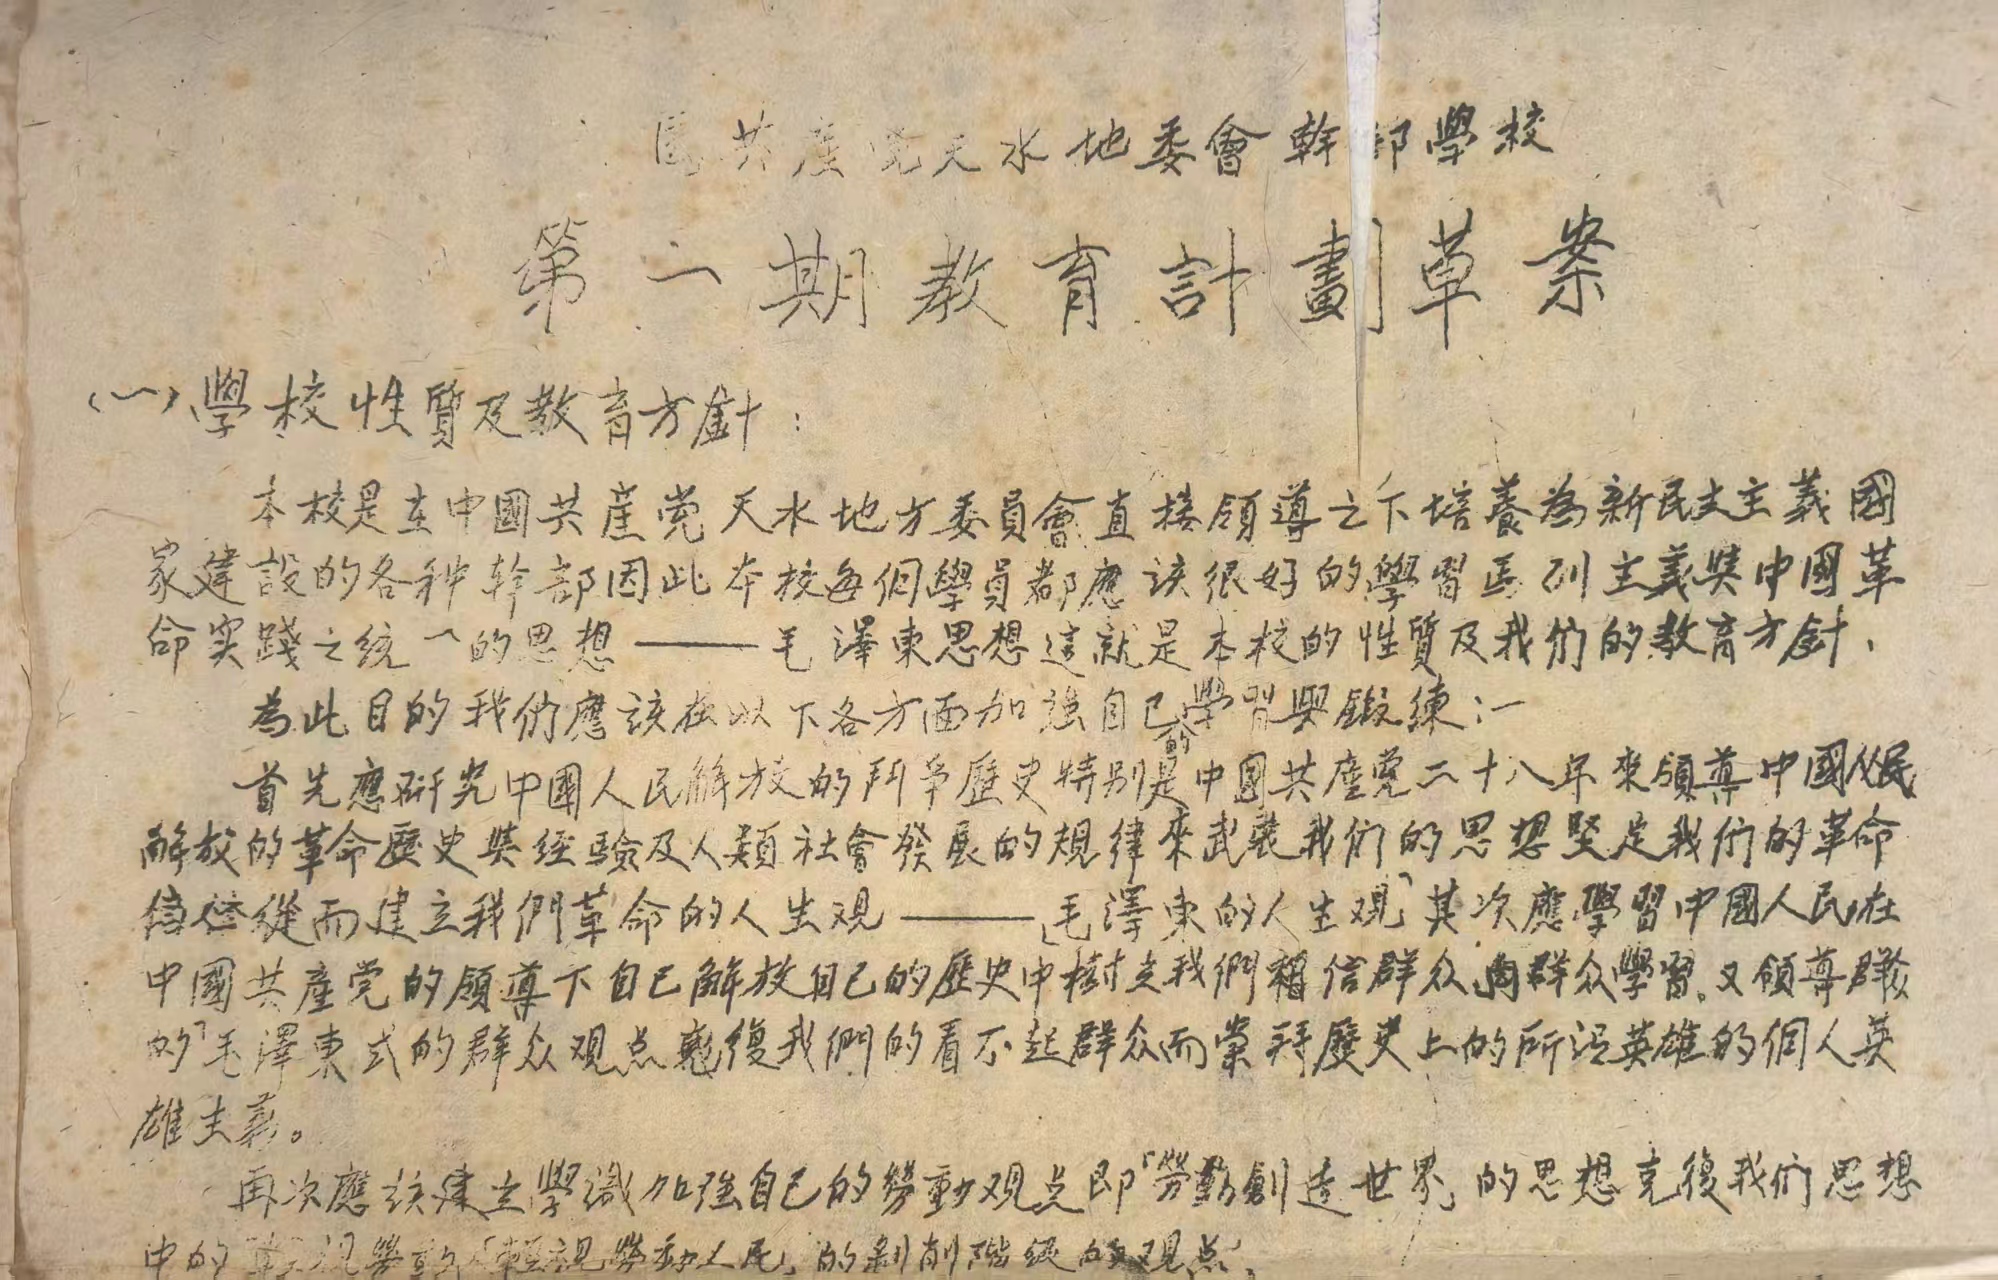 國共産党天水地委會幹部學校
第一期教育計劃草案
(一)、學校性質及教育方針：
本校是在中國共産党天水地方委員會直接領導之下培養為新民主主義國
家建設的各种幹部因此本校每個學員都應该很好的學習馬列主義與中國革
命实踐之統一的思想——毛澤東思想這就是本校的性質及我们的教育方針、
為此目的我们應该在以下各方面加強自己的學習與鍛練：一
首先應研究中國人民解放的鬥争歷史特别是中國共産党二十八年來領導中國人民
解放的革命歷史與經驗及人類社會發展的規律來武裝我们的思想堅定我们的革命
信念從而建立我們革命的人生观——「毛澤東的人生观」其次應學習中國人民在
中國共産党的領導下自己解放自己的歷史中樹立我們相信群众向群众學習。又領導群众
的「毛澤東式的群众观点克復我們的看不起群众而崇拜歷史上的所谓英雄的個人英
雄主義。
再次應该建立學識加強自己的勞動观点即「勞動創造世界」的思想克復我们思想
中的「輕視勞動」「輕視勞動人民」的剝削階級的观点